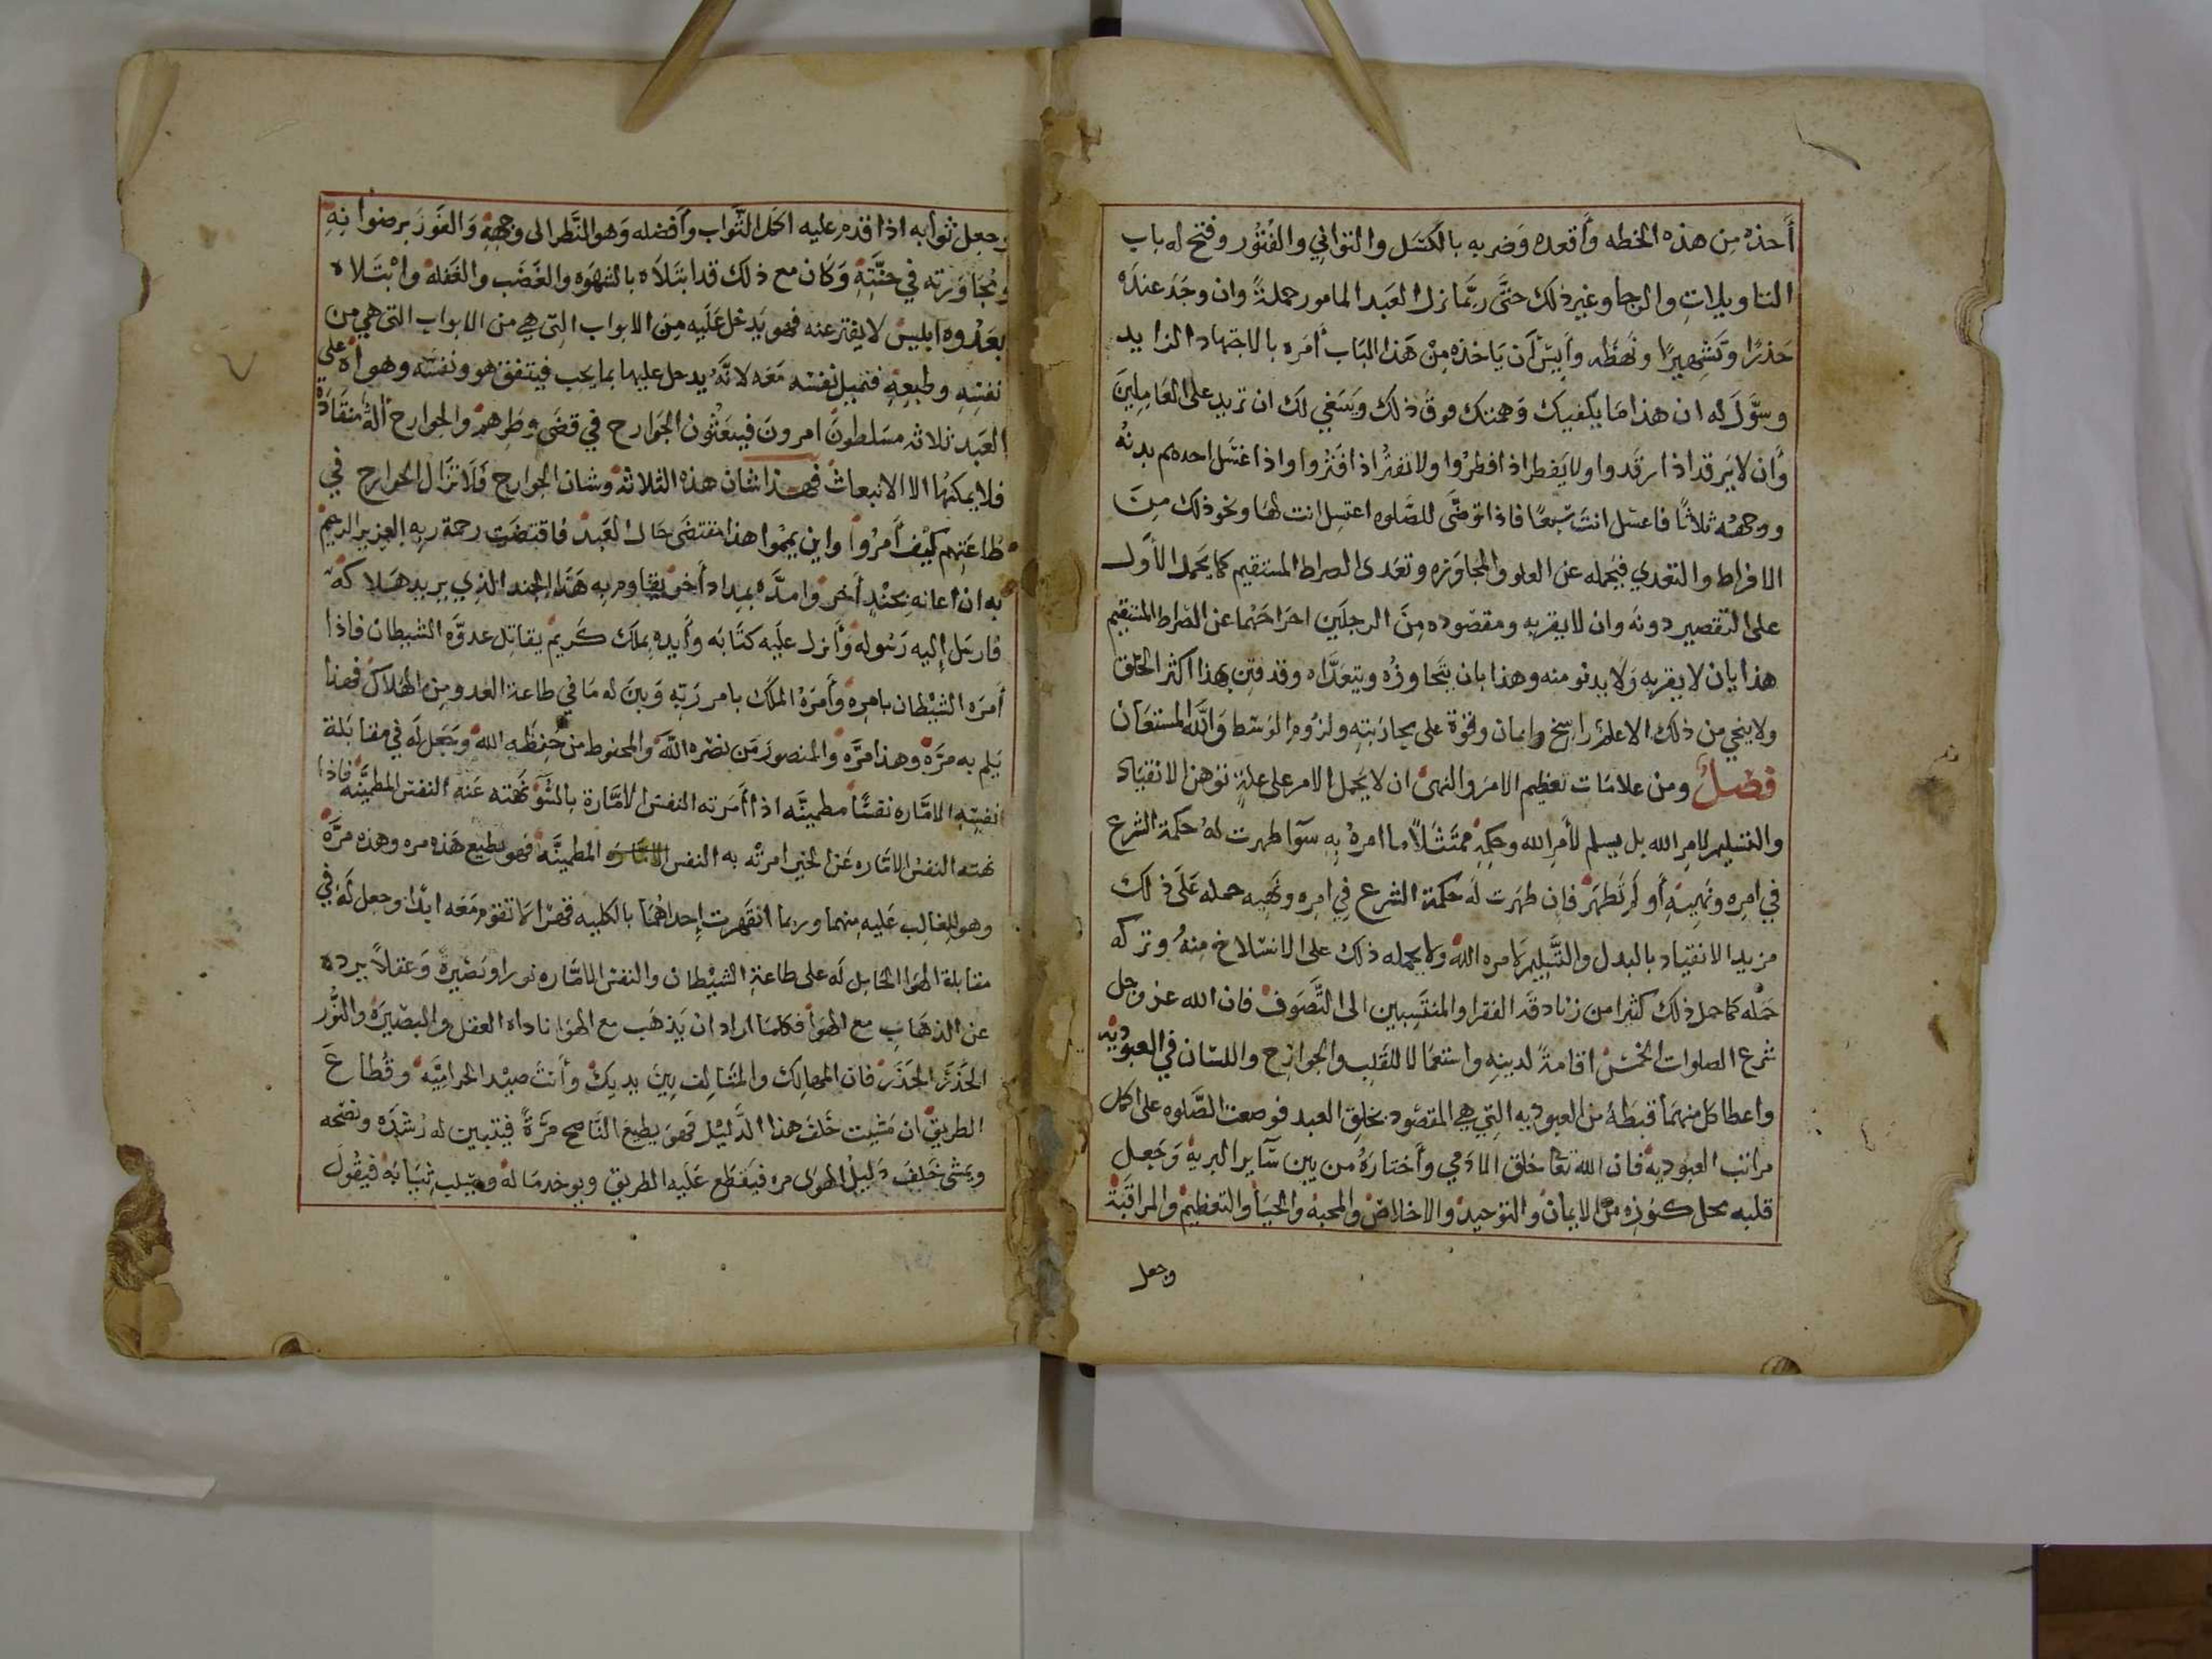 أخذه من هذه الخطه وأقعده وضربه بالكسل والتواني والفتور وفتح له باب
التاويلات والرجا وغير ذلك حتَّى ربَّما ترك العبد المامور جملةً وان وجَدَ عنده
حَذرًا وتَشميرًا ونَهضَه وأيسَ أن ياخذه مِنْ هَذا الباب أمَره بالاجتهاد الزايد
وسوَّلَ له ان هذا ما يكفيك وَهمتك فوق ذلك وينبغي لك ان تزيد على العَامِلِينَ
وأن لا يرقد اذا رقَدوا ولا يفطر اذا افطرُوا ولا تفتُر اذا افتَرُوا واذا غسَل احدهم يديهُ
ووجههُ ثلاثًا فاغسل انتَ سَبعًا فاذا توضَّى للصَّلوه اغتسِل انت لهَا ونحو ذلك مِنَ
الافراط والتعدي فيحمله عن الغلو والمجاوَزه وتعَدى الصراط المستقيم كما يَحمل الأوَّل
على التقصير دونه وان لا يقربه ومقصوده مِنَ الرجلَين اخرَاجَهما عن الصّراط المستقيم
هذا بان لا يقربه وَلا يدنو منه وهذا بان يتَجاوزُه ويتعدَّاه وقد فتِن بهذا اكثر الخلق
ولا ينجي من ذلك الا علمٌ راسِخ وايمان وقوّة على محاربَتِهِ ولزُوم الوسَط وَاللَّه المستعَان
فصلٌ ومن علامَات تعظيم الامر والنهى ان لا يَحمل الامر على علةٍ توهن الانقيَاد
والتسليم لامرِ الله بل يسلم لأمرِ الله وحكمِهِ ممتَثَلاً ما امرهُ بِهِ سوآ ظهرت لهُ حكمة الشرع
في امرِه ونهيهِ أو لَم تظهر فان ظهَرت لَه حكمة الشرع في امره ونَهيه حمله عَلَى ذلك
مزيد الانقياد بالبدل والتَّسليم لامره اللّه ولا يحمله ذلك على الانسلاخ مِنهُ وتركه
حَمله كما حمل ذلك كثيرا من زنادقه الفقرا والمنتَسِبين الى التَّصَوف فان الله عز وجل
شرع الصلوات الخمسَ اقامةً لدينِه واستعمَالا للقَلب والجوارح واللسَان في العبوديه
واعطا كل منهمَا قسطَهُ من العبوديه التِي هي المقصُود بخلق العبد فوضعت الصَّلوه على اكمل
مراتب العبوديه فان الله تعا خلق الادَمي وأختارَهُ من بين سَآير البريه وَجَعل
قلبه محل كنوزه من الايمان والتوحيد والاخلاص والمحبة والحيَا والتعظيم والمراقَبَة
وجعل
وجعل ثوابه اذا قدم عليه اكمَل الثَّواب وأفضله وَهو النَّظر الى وجههِ وَالفَوزَ برضوانِهِ
ومُجَاوَرته في جنَّتِهِ وَكَان مع ذلكَ قد ابتَلاَه بالشهوَه والغَضَب والغَفله وابْتَلاه
بعَدُوه ابليس لا يفتر عنه فهو يَدخل عَلَيه مِن الابواب التي هي من الابواب التى هي من
نفسِهِ وطبعِهِ فتميل نفسُه مَعَه لانَّه يدخل عليها بما يحب فيتفق هو ونفسَه وهواه على
العَبد ثلاثه مسَلطونَ امرونَ فيبعَثُون الجَوارح في قضَى وطَرهم والجوارح ألةٌ منقَادة
فلا يمكنُها الا الانبعاث فهذا شان هذه الثلاثه وشان الجوارح فَلا تزال الجوارح في
طاعَتِهم كيف أمرُوا واين يممُوا هذا مقتضَى حَال العَبد فاقتضَت رحمة ربه العزيز الرحيم
به ان اعانه بجُندٍ أخر وامدَّه بمداد أخر يقاوم به هَذا الجند الذي يريد هَلاكه
فارسَل اليه رَسُوله وَأنزل عَلَيه كتَابَه وأيده بملَك كَريم يقاتل عدوَّه الشيطان فاذا
أمرَه الشيْطان بامرِه وأَمرَهُ الملَك بامر رَبّهِ وَبيَن له مَا في طاعة العدو مِن الهَلاك فهذا
يَلم به مرَّه وهذا مرَّه والمنصور مَن نصَره اللَّه والمحفوظ من حَفِظَه الله وجَعَل لَه في مقابَلة
نفسِهِ الامَّاره نفسًا مطمينَّه اذا أمَرته النفسُ الامَّارة بالسُّوَء نَهته عَنهُ النفس المطمينَّه فاذا
نهته النفس الامّاره عَن الخير امرتْه به النفس الامَّارَه المطمينَّه فهو يطيع هَذه مره وهذه مرَّه
وهو للغالِب عَليهِ منهما وربما انقَهرت إحداهُما بالكليه قهرًا لا تقوم مَعَه ابدًا وجعل لَه في
مقابلة الهوَا الحَامِل لَه على طاعَةِ الشيْطان والنفس الامَّاره نورا وبَصِيرةً وَعَقلاً يرده
عن الذهَابِ مع الهوَا فكلما اراد ان يَذهَب مع الهوَا ناداه العقل والبصيَرة والنُّور
الحَذَر الحَذَر فان المهالِك والمتَالِف بينَ يديكَ وأنتَ صيد الحراميَّه وقُطاعَ
الطريق ان مَشيت خَلفَ هذا الدَّليل فَهو يطيع النَّاصح مَرَّةً فيتبين له رُشدَه ونصَحه
ويَمشى خَلفَ دَليل الهوَى مره فيَقطَع عَلَيه الطريق ويوخد مَا له ويسلب ثيَابَهُ فيقُول